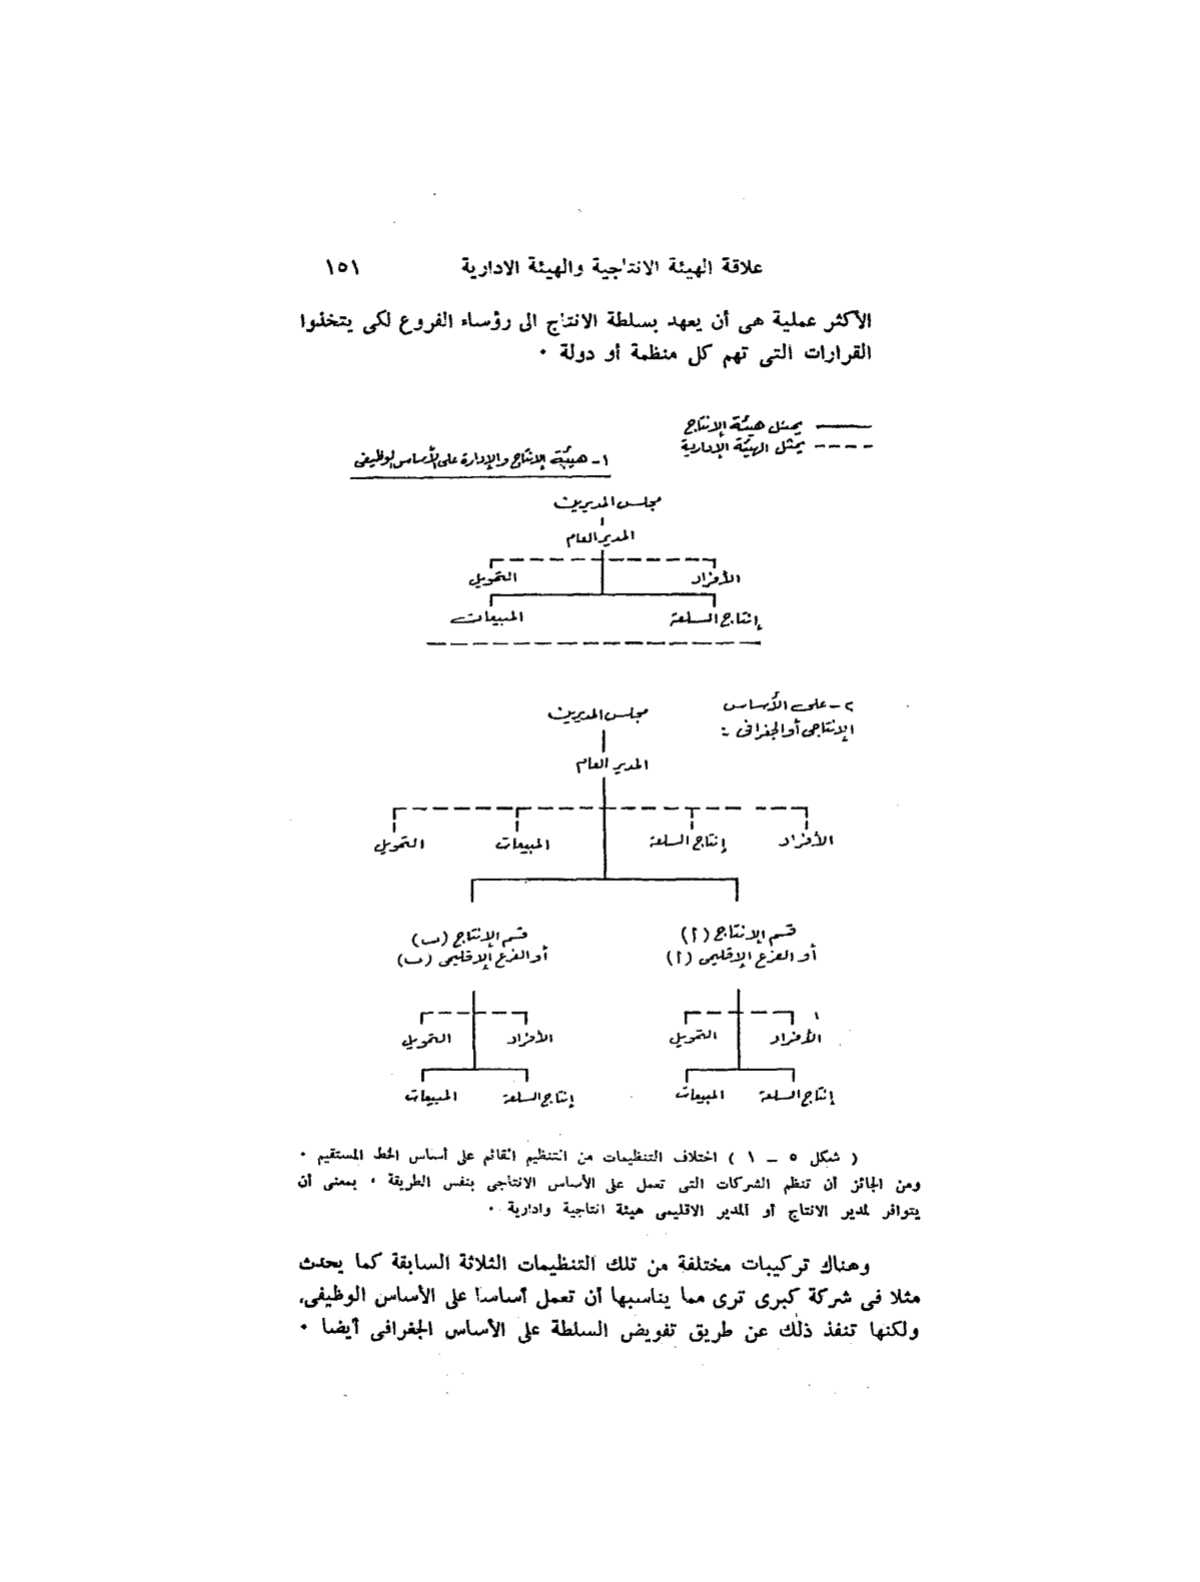 علاقة الهيئة الانتاجية والهيئة الادارية ١٥١
الأكثر عملية هى أن يعهد بسلطة الانتاج الى رؤساء الفروع لكى يتخذوا
القرارات التى تهم كل منظمة أو دولة ٠
يمثل هيئة الإنتاج
يمثل الهيئة الإدارية
١- هيئة الإنتاج والإدارة على الأساس الوظيفى
مجلس المديرين
المدير العام
الأفراد التمويل
إنتاج السلعة المبيعات
٢- على الأساس
الإنتاجى أو الجغرافى :-
مجلس المديرين
المدير العام
الأفراد إنتاج السلعة المبيعات التمويل
قسم الإنتاج (أ) قسم الإنتاج (ب)
أو الفرع الإقليمى (أ) أو الفرع الإقليمى (ب)
الأفراد التمويل الأفراد التمويل
إنتاج السلعة المبيعات إنتاج السلعة المبيعات
( شكل ٥ – ١ ) اختلاف التنظيمات من التنظيم القائم على أساس الخط المستقيم ٠
ومن الجائز أن تنظم الشركات التى تعمل على الأساس الانتاجى بنفس الطريقة ، بمعنى أن
يتوافر لمدير الانتاج أو المدير الاقليمى هيئة انتاجية وادارية ٠
وهناك تركيبات مختلفة من تلك التنظيمات الثلاثة السابقة كما يحدث
مثلا فى شركة كبرى ترى مما يناسبها أن تعمل أساسا على الأساس الوظيفى،
ولكنها تنفذ ذلك عن طريق تفويض السلطة على الأساس الجغرافى أيضا ٠